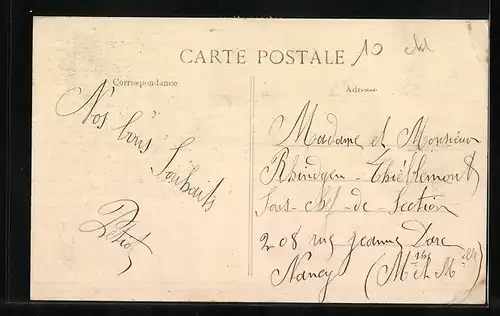 CARTE POSTALE
10
Correspondance
Adresse
Nos bons
Souhaits
Madame et Monsieur
Thiéblemont
Sous-chef-de-Section
208 rue Jeanne Darc
Nancy (Mthe et Mlle)